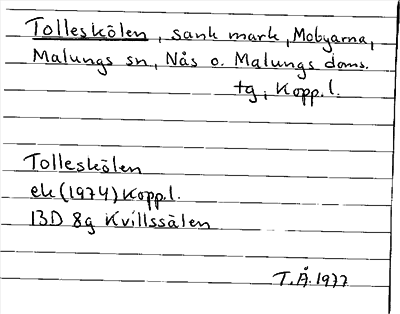 Tolleskölen, sank mark, Mobyarna,
Malungs sn, Nås o. Malungs doms.
tg, Kopp.l.
Tolleskölen
ek (1974) Kopp.l.
13D 8g Kvillssälen
T.Å. 1977